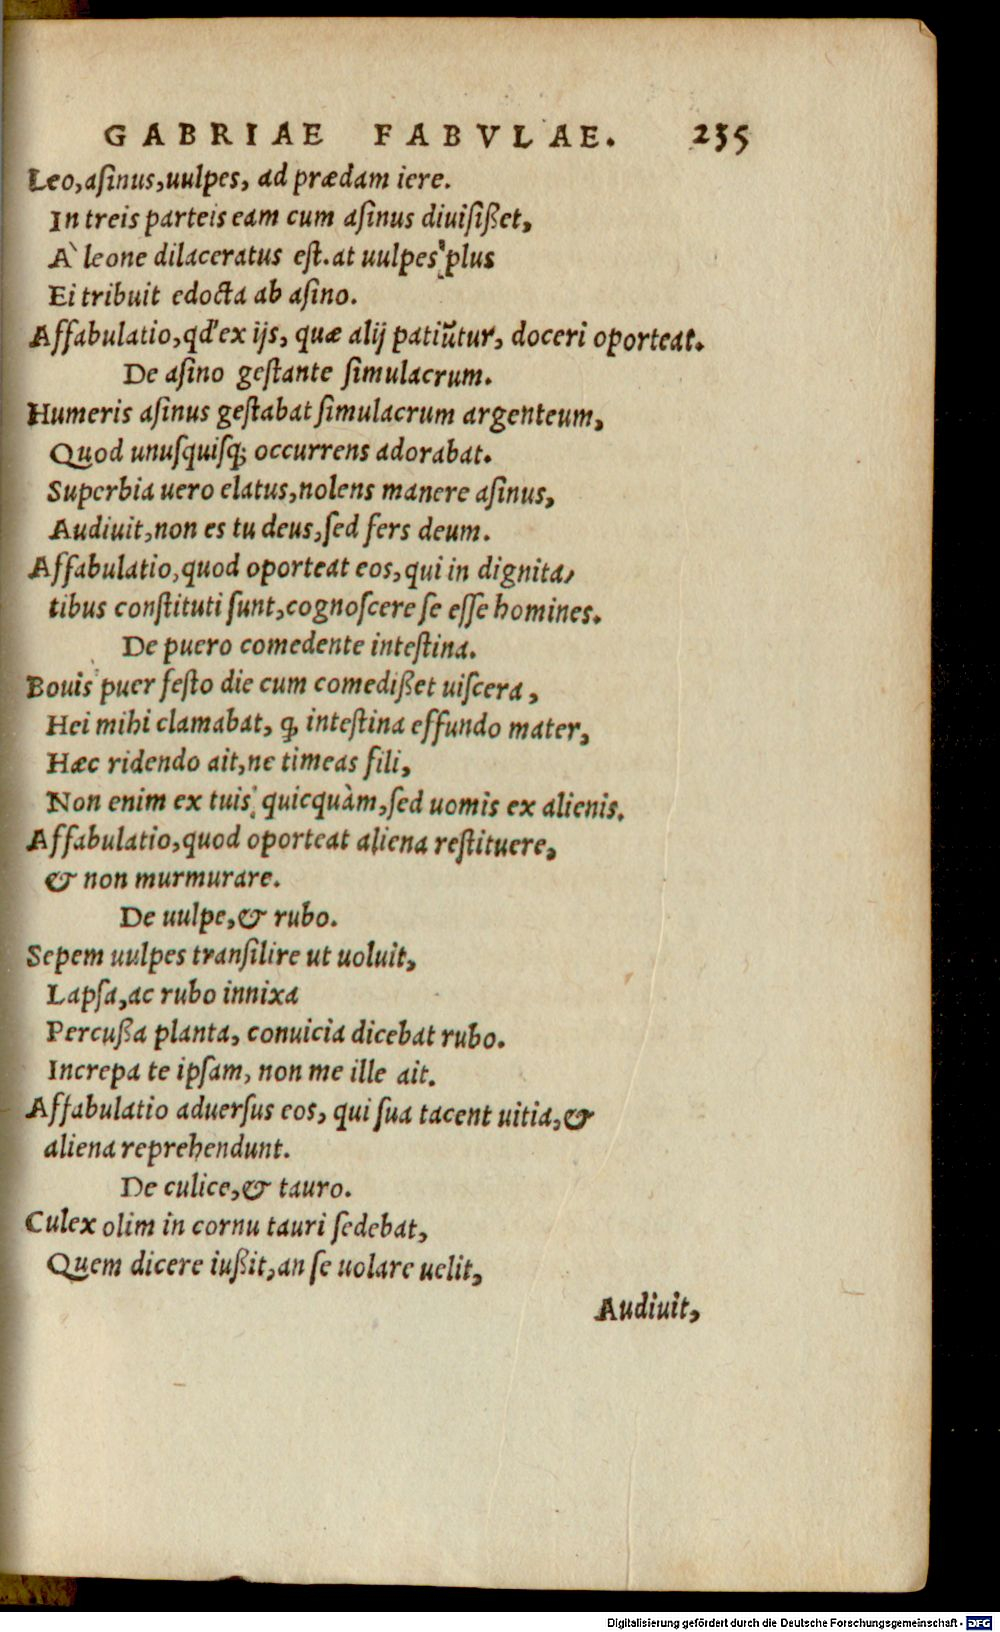 GABRIAE FABVLAE. 235
Leo,aſinus,uulpes, ad prædam iere.
In treis parteis eam cum aſinus diuiſißet,
A` leone dilaceratus eſt.at uulpes plus
Ei tribuit edocta ab aſino.
Affabulatio,qd' ex ijs, quæ alij patiũtur, doceri oporteat.
De aſino geſtante ſimulacrum.
Humeris aſinus geſtabat ſimulacrum argenteum,
Quod unuſquiſq; occurrens adorabat.
Superbia uero elatus,nolens manere aſinus,
Audiuit,non es tu deus,ſed fers deum.
Affabulatio,quod oporteat eos,qui in dignita/
tibus conſtituti ſunt,cognoſcere ſe eſſe homines.
De puero comedente inteſtina.
Bouis puer feſto die cum comedißet uiſcera,
Hei mihi clamabat, ꝗ inteſtina effundo mater,
Hæc ridendo ait,ne timeas fili,
Non enim ex tuis quicquàm,ſed uomis ex alienis.
Affabulatio,quod oporteat aliena reſtituere,
& non murmurare.
De uulpe,& rubo.
Sepem uulpes tranſilire ut uoluit,
Lapſa,ac rubo innixa
Percußa planta, conuicia dicebat rubo.
Increpa te ipſam, non me ille ait.
Affabulatio aduerſus eos, qui ſua tacent uitia,&
aliena reprehendunt.
De culice,& tauro.
Culex olim in cornu tauri ſedebat,
Quem dicere iußit,an ſe uolare uelit,
Audiuit,
Digitalisierung gefördert durch die Deutsche Forschungsgemeinschaft - DFG